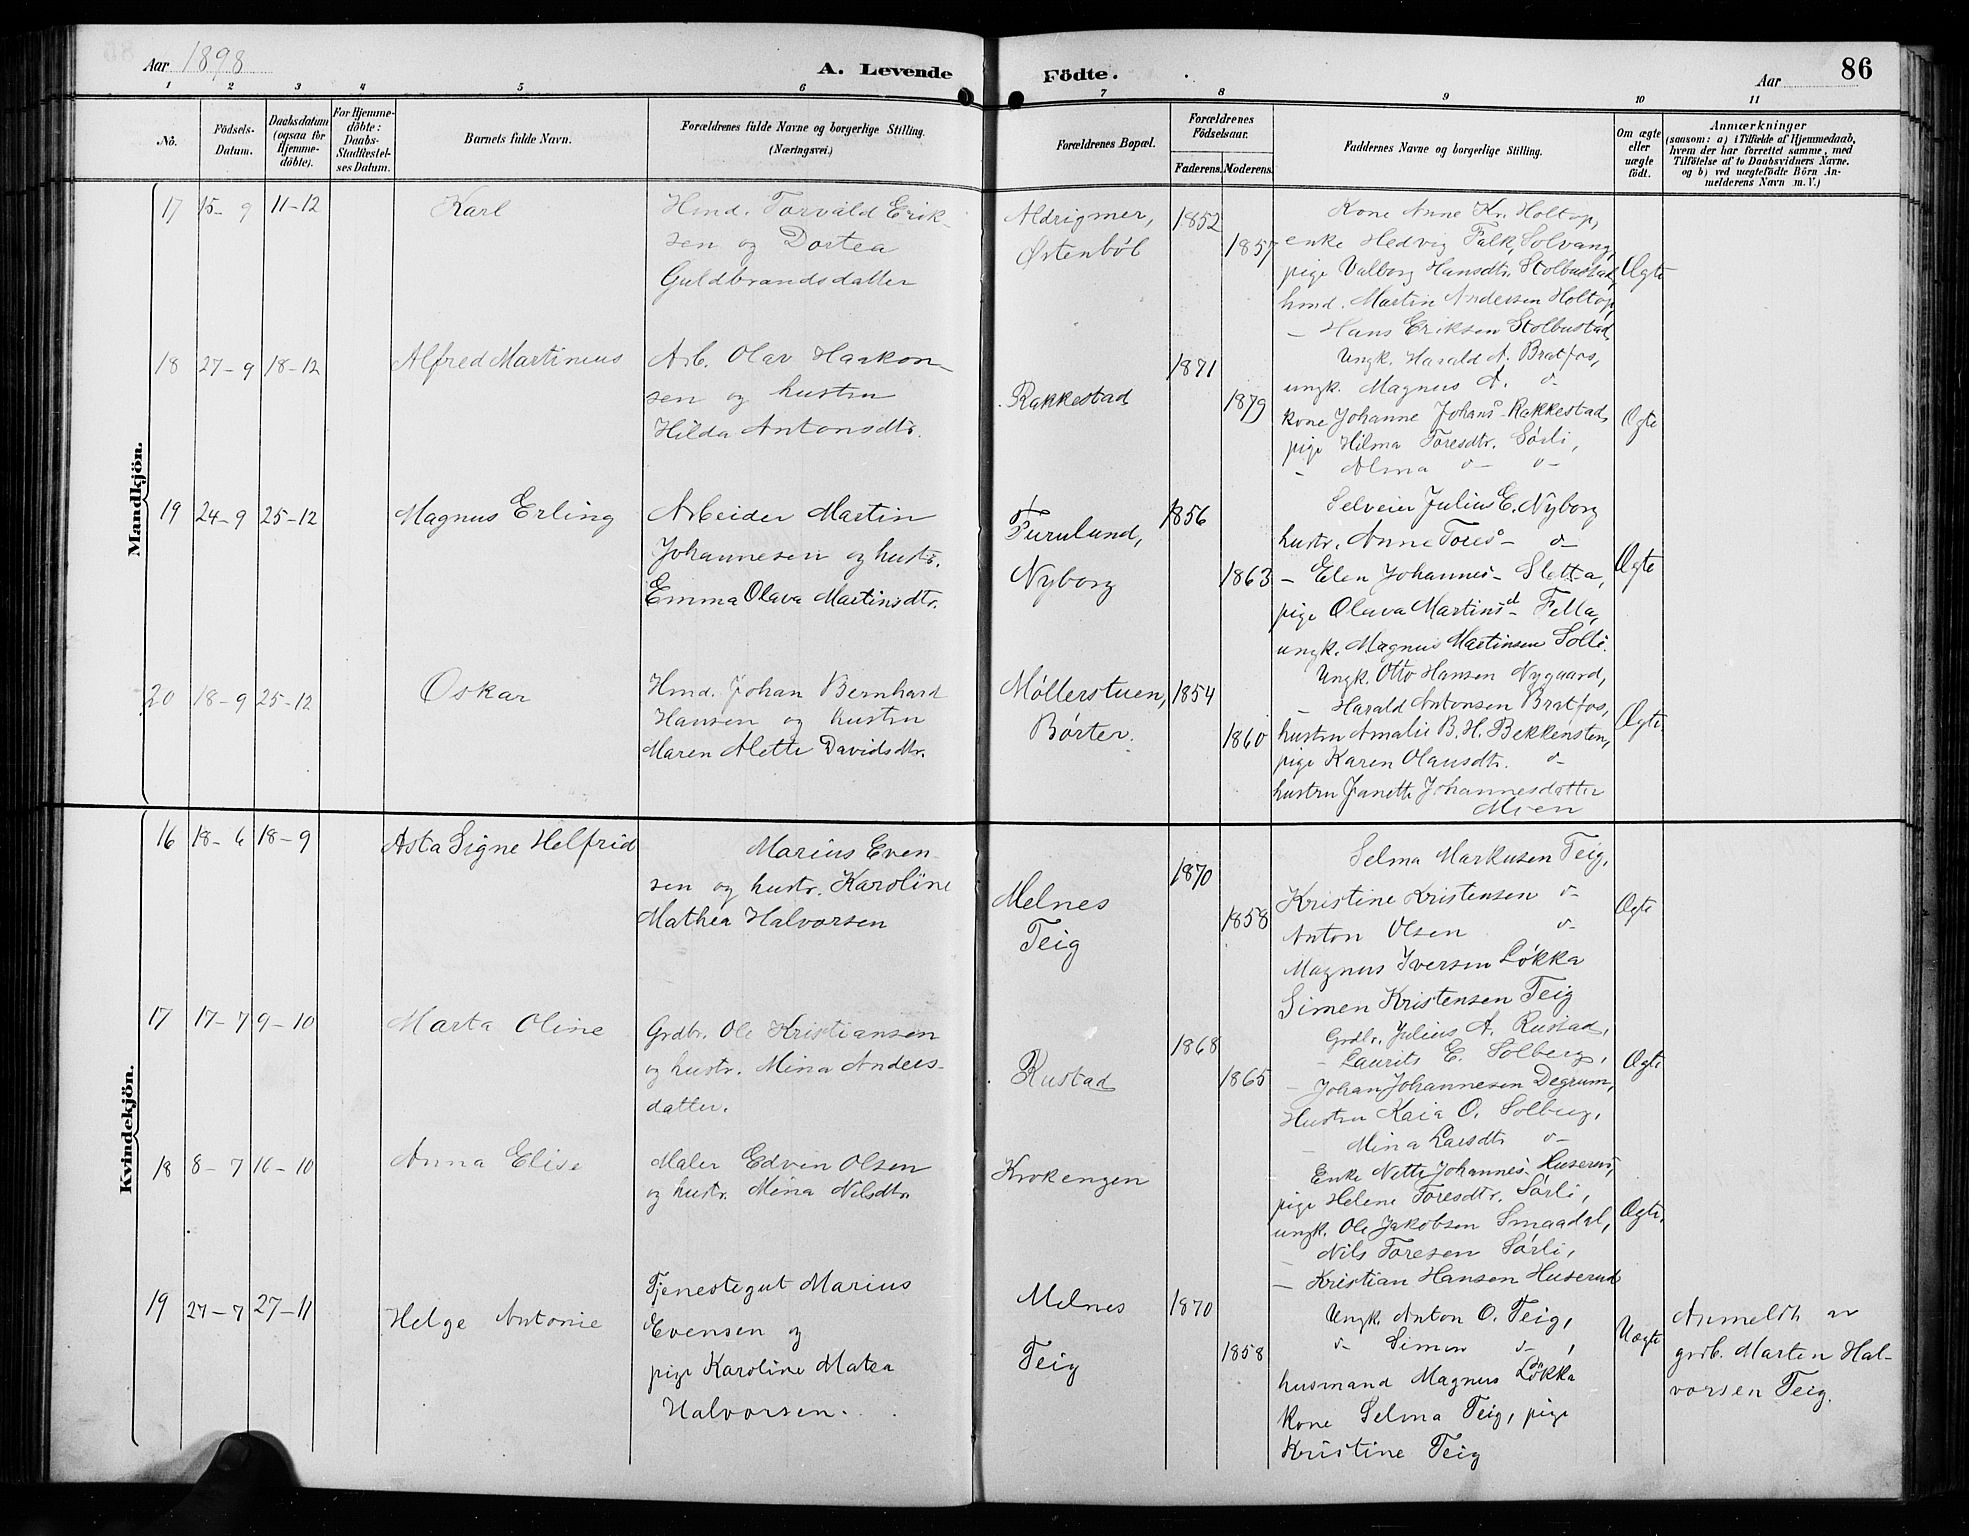 Aar 1898
A. Levende Födte.
Aar
86
1 2 3 4 5 6 7 8 9 10 11
No.
Födsels-
Datum.
Daabsdatum
(ogsaa for
Hjemme-
döbte).
For Hjemme-
döbte:
Daabs-
Stadfæstel-
ses Datum.
Barnets fulde Navn.
Forældrenes fulde Navne og borgerlige Stilling.
(Næringsvei.)
Forældrenes Bopæl.
Forældrenes
Födselsaar.
Faderens.
Moderens.
Faddernes Navne og borgerlige Stilling.
Om ægte
eller
uægte
födt.
Anmærkninger
(saasom: a) i Tilfælde af Hjemmedaab,
hvem der har forrettet samme, med
Tilföielse af to Daabsvidners Navne.
og b) ved uægtefödte Börn An-
melderens Navn m. V.)
Mandkjön.
17 15-9 11-12
Karl
Hmd. Torvald Erik-
sen og Dortea
Guldbrandsdatter
Aldrigmer,
Østenbøl
1852
1857
Kone Anne Kr. Holtop,
enke Hedvig Falk, Solvang,
pige Valborg Hansdtr. Stolbustad,
hmd. Martin Andersen Holtop,
— Hans Eriksen Stolbustad
Ægte
18 27-9 18-12
Alfred Martinius
Arb. Olav Haakon-
sen og hustru
Hilda Antonsdtr.
Rakkestad
1871
1879
Ungk. Harald A. Bratfos,
ungk. Magnus A. o-
kone Johanne Johans- Rakkestad
pige Hilma Toresdtr. Sørli,
- Alma o- o-
Ægte
19 24-9 25-12
Magnus Erling
Arbeider Martin
Johannesen og hustr.
Emma Olava Martinsdtr.
Furulund,
Nyborg
1856
1863
Selveier Julius E. Nyborg
hustr. Anne Tores- o-
— Elen Johannes- Sletta,
pige Olava Martinsd- Fella,
ungk. Magnus Martinsen Solli.
Ægte
20 18-9 25-12
Oskar
Hmd. Johan Bernhard
Hansen og hustru
Maren Alette Davidsdtr.
Møllerstuen,
Børter.
1854
1860
Ungk. Otto Hansen Nygaard,
— Harald Antonsen Bratfos,
hustru Amalie B. H. Bekkensten,
pige Karen Olausdtr. o-
hustru Janette Johannesdatter
Moen
Ægte
Kvindekjön.
16 18-6 18-9
Asta Signe Helfrid
Marius Even-
sen og hustr. Karoline
Mathea Halvorsen
Melnes
Teig
1870
1858
Selma Markusen Teig,
Kristine Kristensen o-
Anton Olsen o-
Magnus Iversen Løkka
Simen Kristensen Teig
Ægte
17 17-7 9-10
Marta Oline
Grdbr. Ole Kristiansen
og hustr. Mina Anders-
datter.
Rustad
1868
1865
Grdbr. Julius A. Rustad,
— Laurits E. Solberg,
— Johan Johannesen Degrum,
Hustru Kaia O. Solberg,
— Mina Larsdtr o-
Ægte
18 8-7 16-10
Anna Elise
Maler Edvin Olsen
og hustr. Mina Nilsdtr.
Krokengen
Enke Nette Johannes- Huserud,
pige Helene Toresdtr. Sørli,
ungk. Ole Jakobsen Smaadal,
— Nils Toresen Sørli,
— Kristian Hansen Huserud
Ægte.
19 27-7 27-11
Helge Antonie
Tjenestegut Marius
Evensen og
pige Karoline Matea
Halvorsen.
Melnes
Teig
1870
1858
Ungk. Anton O. Teig,
o- Simen o-,
husmand Magnus Løkka
Kone Selma Teig, pige
Kristine Teig
Uægte
Anmeldt av
grdb. Marten Hal-
vorsen Teig.